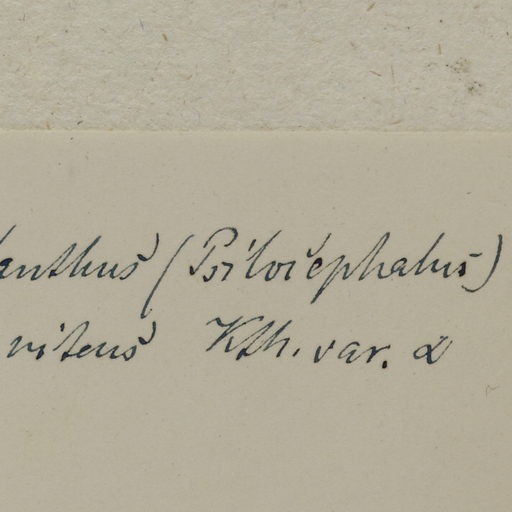 anthus (Psilocephalus)
nitens Kth. var. α